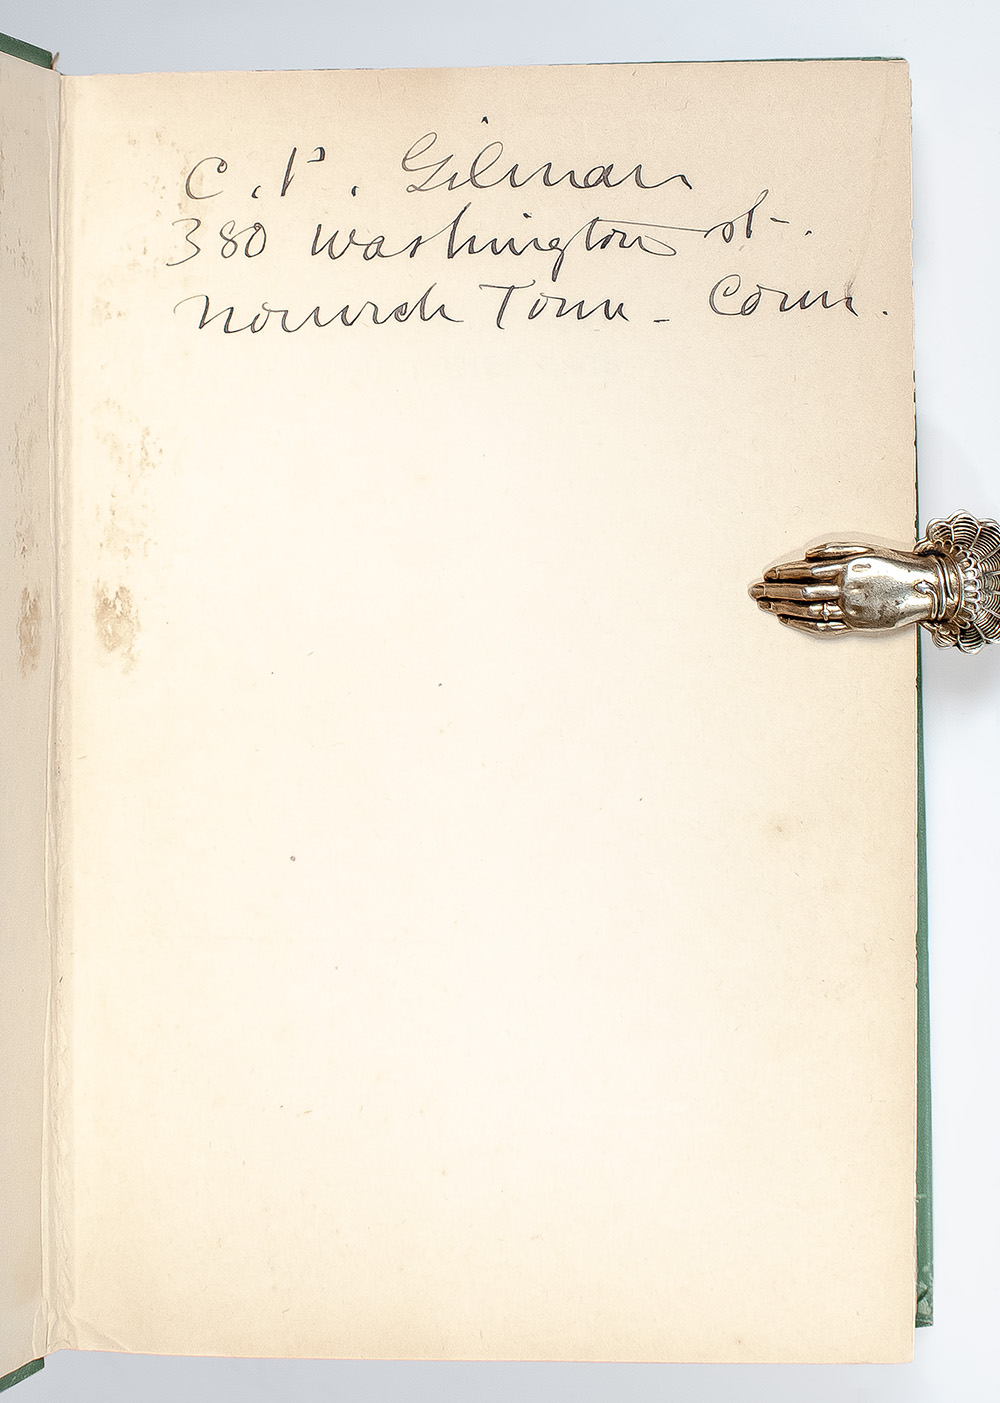 C. P. Gilman
380 Washington st.
Norwich Town - Conn.